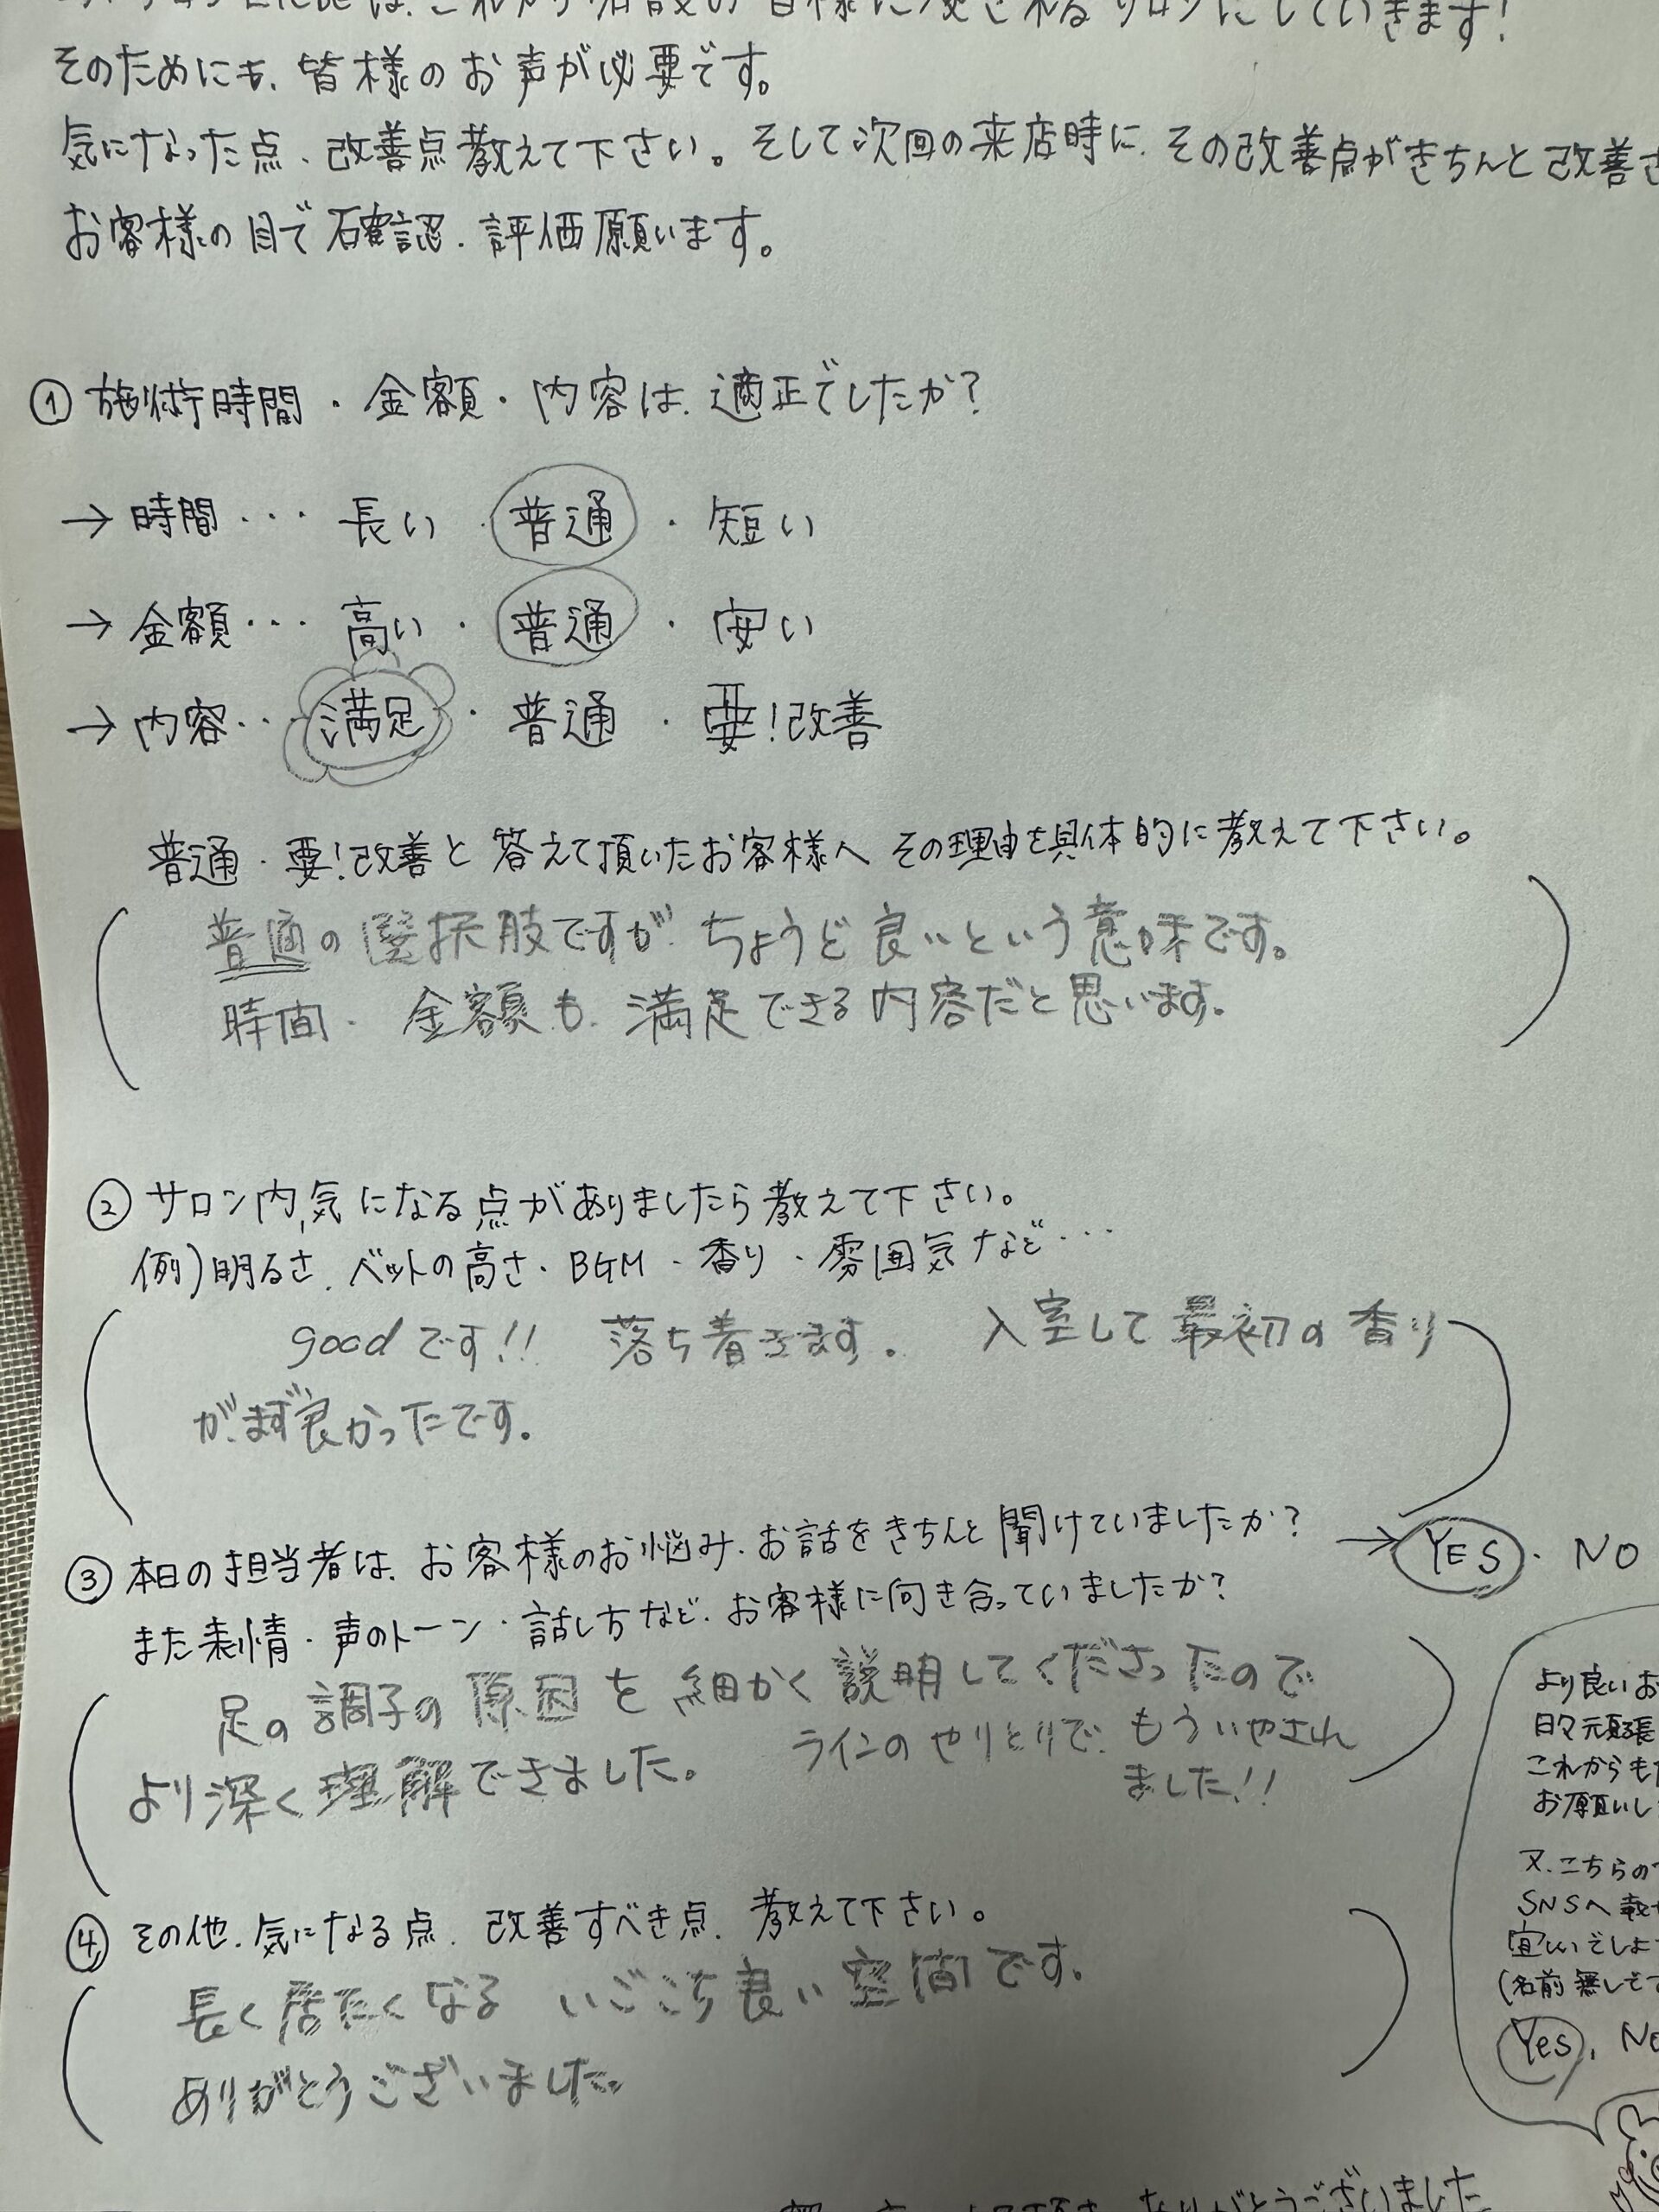 そのためにも、皆様のお声が必要です。
気になった点、改善点教えて下さい。そして次回の来店時に、その改善点がきちんと改善さ
お客様の目で確認、評価願います。
① 施術時間・金額・内容は、適正でしたか?
→ 時間・・・ 長い・普通・短い
→ 金額・・・ 高い・普通・安い
→ 内容・・・ 満足・普通・要!改善
普通・要!改善と答えて頂いたお客様へ その理由を具体的に教えて下さい。
普通の選択肢ですが、ちょうど良いという意味です。
時間、金額も、満足できる内容だと思います。
② サロン内、気になる点がありましたら教えて下さい。
例)明るさ、ベットの高さ・BGM・香り・雰囲気など・・・
goodです!! 落ち着きます。 入室して最初の香り
が、まず良かったです。
③ 本日の担当者は、お客様のお悩み、お話をきちんと聞けていましたか? → YES・NO
また表情・声のトーン・話し方など、お客様に向き合っていましたか?
足の調子の原因を細かく説明してくださったので
より深く理解できました。
ラインのやりとりで、もういやされ
ました!!
④ その他、気になる点、改善すべき点、教えて下さい。
長く居たくなる いごこち良い空間です。
ありがとうございました。
より良いお
日々頑張
これからも
お願いし
又、こちらの
SNSへ載せ
宜しいでしょ
(名前無しで
Yes, No
ありがとうございました